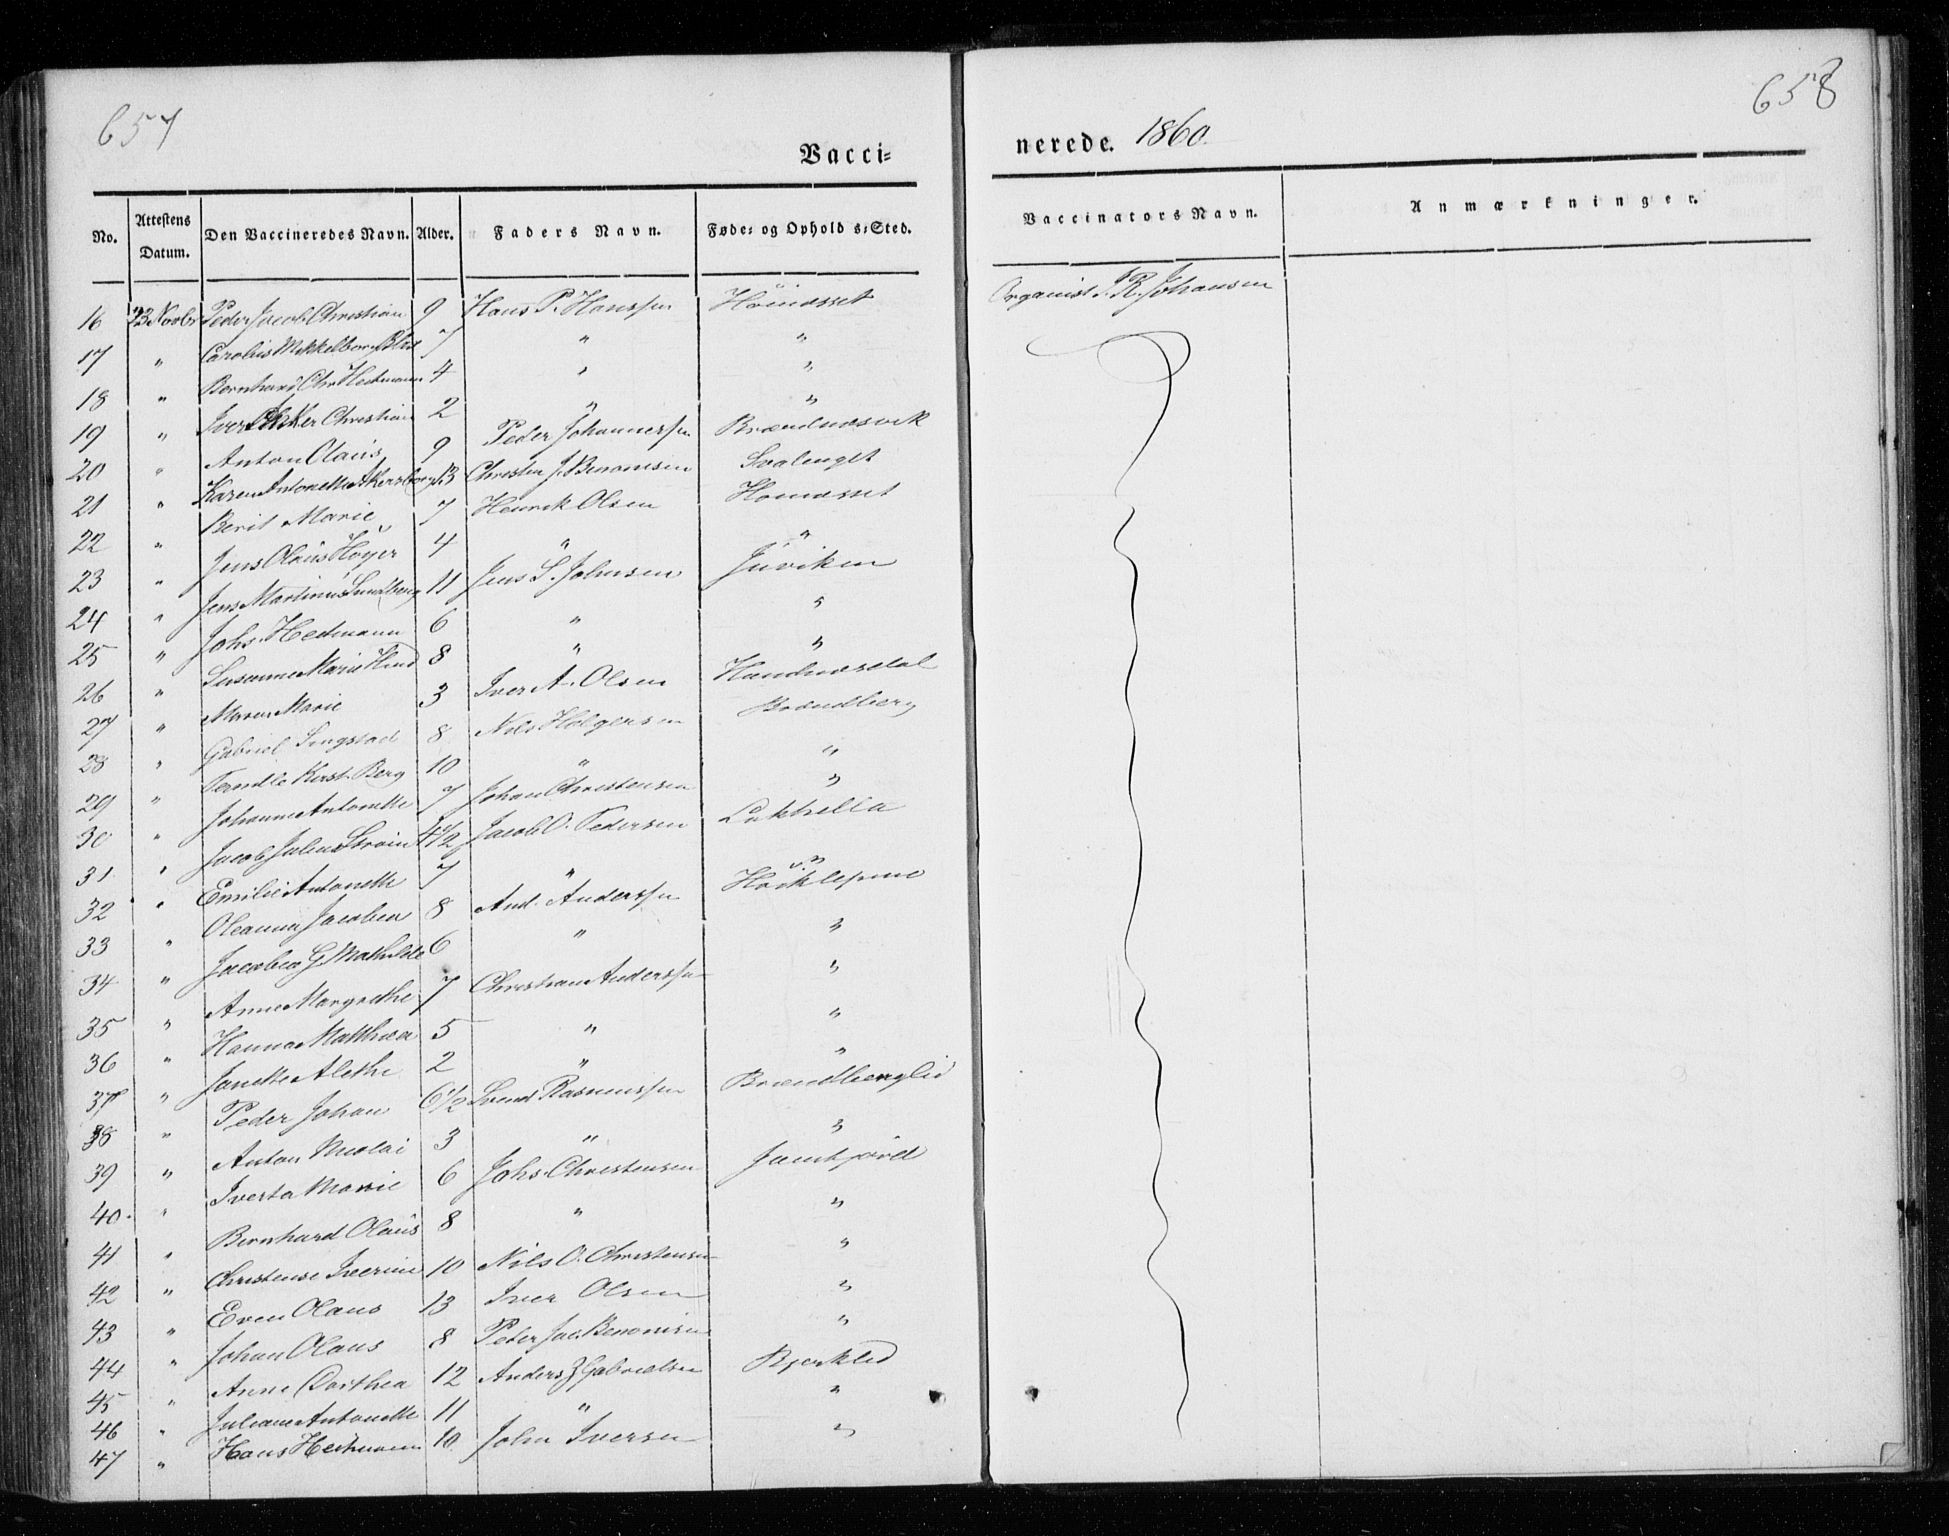 657
658
Vacci=
nerede. 1860.
No. Attestens Datum. Den Vaccineredes Navn. Alder. Faders Navn. Føde= og Ophold s=Sted. Vaccinators Navn. Anmærkninger.
16 23 Novbr Peder Jacob Christian 9 Hans P. Hanssen Organist J. R. Johansen
17 " Carolus Mikkelborg 7 " "
18 " Bernhard Chr. Hedmann 4 " "
19 " Iver Christian 2 " "
20 " Anton Olaüs 9 Peder Johannessen Brændnæsvik
21 " Karen Antonette 13 Christen J. Benonisen Svalenget
22 " Berit Marie 7 Henrik Olsen
23 " Jens Olaüs Høyer 4 " "
24 " Jens Martinus Sundberg 11 Jens S. Johnsen Juviken
25 " Johs. Hedmann 6 " "
26 " Susanne Marie 8 " "
27 " Maren Marie 3 Iver A. Olsen Handnæsdal
28 " Gabriel Singstad 8 Nils Holgersen Brændberg
29 " Kirst. Berg 10 " "
30 " Johanne Antonette 7 Johan Christensen "
31 " Jacob Julius Strøm 4 1/2 Jacob O. Pedersen
32 " Emilie Antonette 7 " "
33 " Oleanna Jacobea 8 And. Anderssen
34 " Jacobea G. Mathilde 6 " "
35 " Anne Margrethe 7 Christian Anderssen "
36 " Hanna Matthea 5 " "
37 " Janette Alethe 2 " "
38 " Peder Johan 6 1/2 Svend Rasmussen Brændberglid
39 " Anton Nicolai 3 " "
40. " Iverta Marie 6 Johs. Christensen Jamtjord
41 " Bernhard Olaüs 8 " "
42 " Christense Iverine 10 Nils O. Christensen "
43 " Even Olaus 13 Iver Olsen "
44 " Johan Olaus 8 Peder Jac. Benonisen "
45 " Anne Dorthea 12 Anders Z Gabrielsen Bjerklid
46 " Juliane Antonette 11 " "
47 " Hans Hedmann 10 John Iversen "